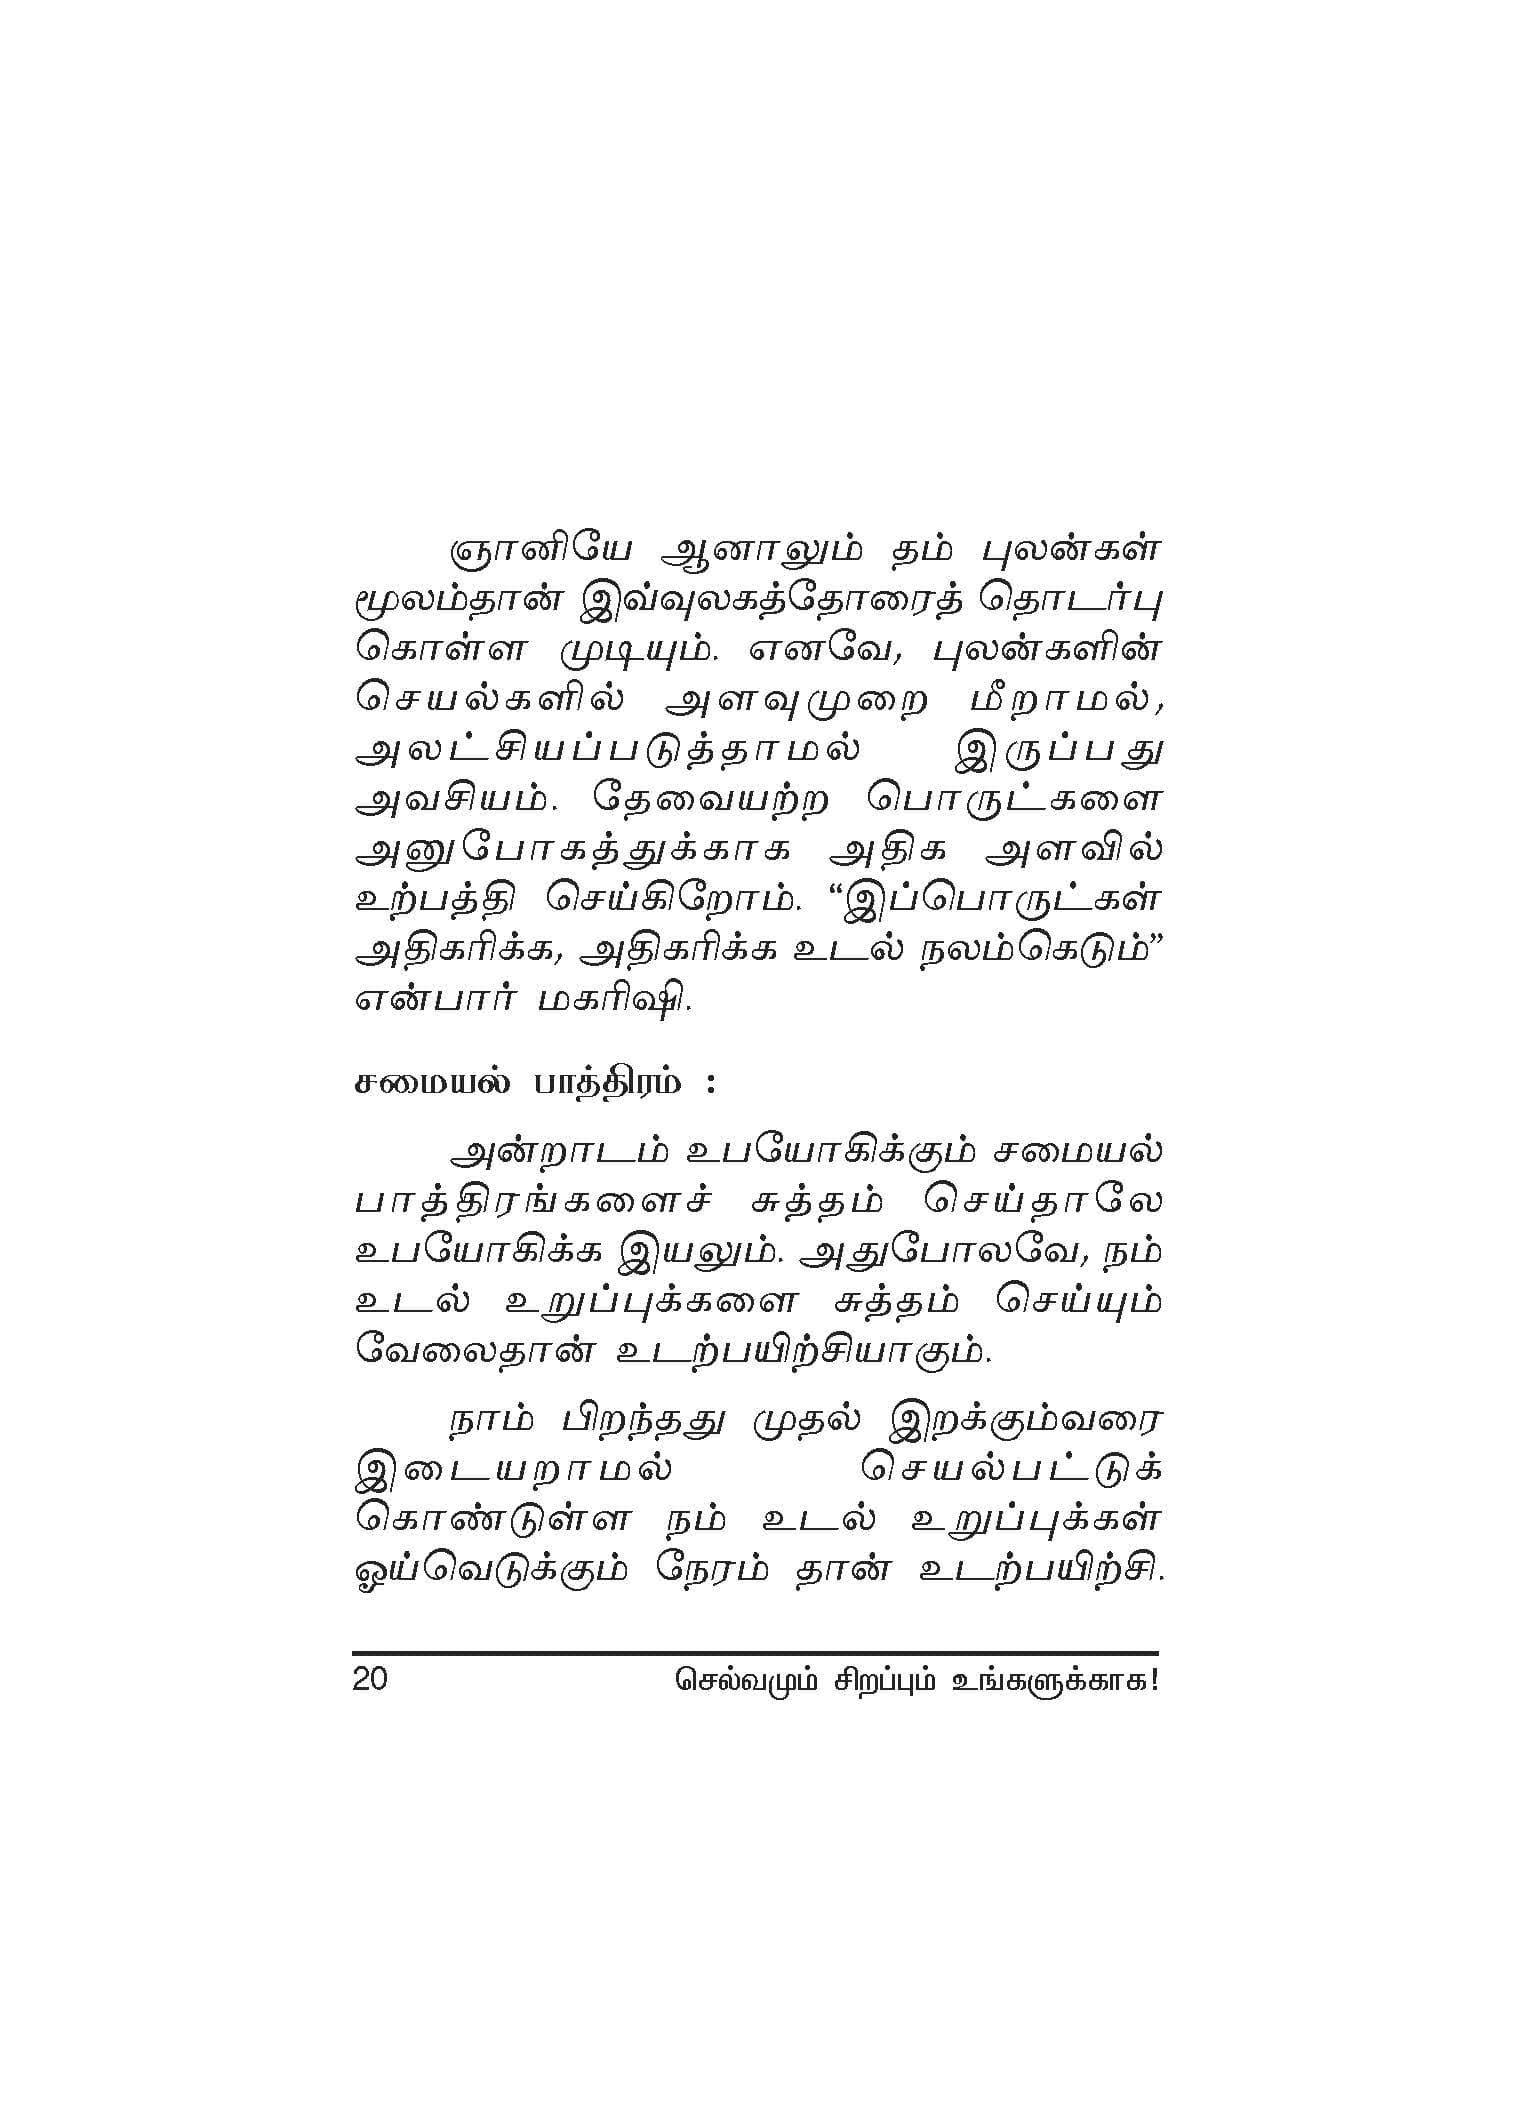 ஞானியே ஆனாலும் தம் புலன்கள்
மூலம்தான் இவ்வுலகத்தோரைத் தொடர்பு
கொள்ள முடியும். எனவே, புலன்களின்
செயல்களில் அளவுமுறை மீறாமல்,
அலட்சியப்படுத்தாமல் இருப்பது
அவசியம். தேவையற்ற பொருட்களை
அனுபோகத்துக்காக அதிக அளவில்
உற்பத்தி செய்கிறோம். “இப்பொருட்கள்
அதிகரிக்க, அதிகரிக்க உடல் நலம்கெடும்”
என்பார் மகரிஷி.
சமையல் பாத்திரம் :
அன்றாடம் உபயோகிக்கும் சமையல்
பாத்திரங்களைச் சுத்தம் செய்தாலே
உபயோகிக்க இயலும். அதுபோலவே, நம்
உடல் உறுப்புக்களை சுத்தம் செய்யும்
வேலைதான் உடற்பயிற்சியாகும்.
நாம் பிறந்தது முதல் இறக்கும்வரை
இடையறாமல் செயல்பட்டுக்
கொண்டுள்ள நம் உடல் உறுப்புக்கள்
ஓய்வெடுக்கும் நேரம் தான் உடற்பயிற்சி.
20 செல்வமும் சிறப்பும் உங்களுக்காக!